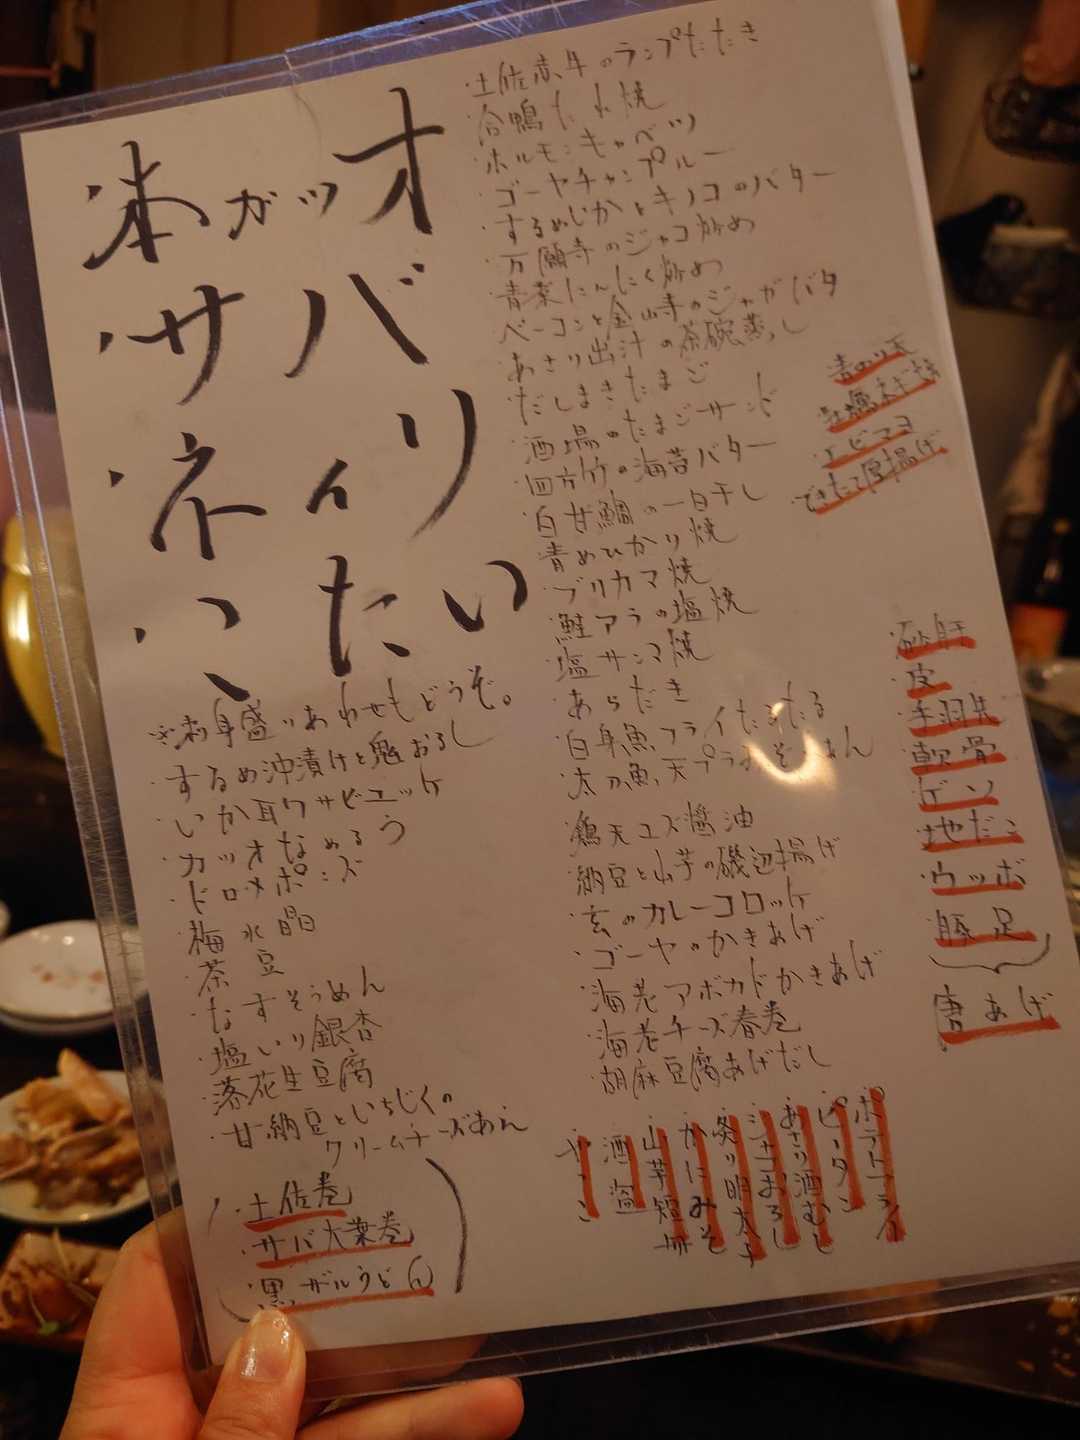 オバリい
ガッツィたい
・本サネこ
※お刺身盛りあわせもどうぞ。
・するめ沖漬けと鬼おろし
・いか耳ワサビユッケ
・カツオなめろう
・ドロメポンズ
・梅水晶
・茶豆
・なすそうめん
・塩いり銀杏
・落花生豆腐
・甘納豆といちじくの
クリームチーズあえ
・土佐巻
・サバ大葉巻
・黒ザルうどん
・土佐赤牛のランプたたき
・合鴨たれ焼
・ホルモンキャベツ
・ゴーヤチャンプルー
・するめじかとキノコのバター
・万願寺のジャコ炒め
・青菜にんにく炒め
・ベーコンと金山寺のジャガバタ
・あさり出汁の茶碗蒸し
・だしまきたまご
・酒場のたまごサンド
・四方竹の海苔バター
・白甘鯛の一日干し
・青めひかり焼
・ブリカマ焼
・鮭アラの塩焼
・塩サンマ焼
・あらだき
・白身魚フライたるたる
・太刀魚天プラ
・鶏天ユズ醤油
・納豆と山芋の磯辺揚げ
・玄のカレーコロッケ
・ゴーヤのかきあげ
・海老アボカドかきあげ
・海老チーズ春巻
・胡麻豆腐あげだし
・青のり天
・牡蠣ネギ焼
・エビマヨ
・できたて厚揚げ
・砂肝
・皮
・手羽先
・軟骨
・ゲソ
・地だこ
・ウツボ
・豚足
唐あげ
・ポテトフライ
・ピータン
・あさり酒むし
・ジャコおろし
・炙り明太子
・かにみそ
・山芋短冊
・酒盗
・やっこ